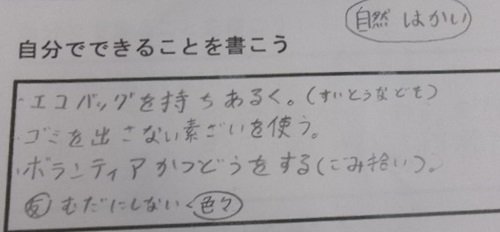 自然 はかい
自分でできることを書こう
・エコバッグを持ちあるく。(すいとうなども)
・ゴミを出さない素ざいを使う。
・ボランティアかつどうをする(ごみ拾い)。
むだにしない 色々